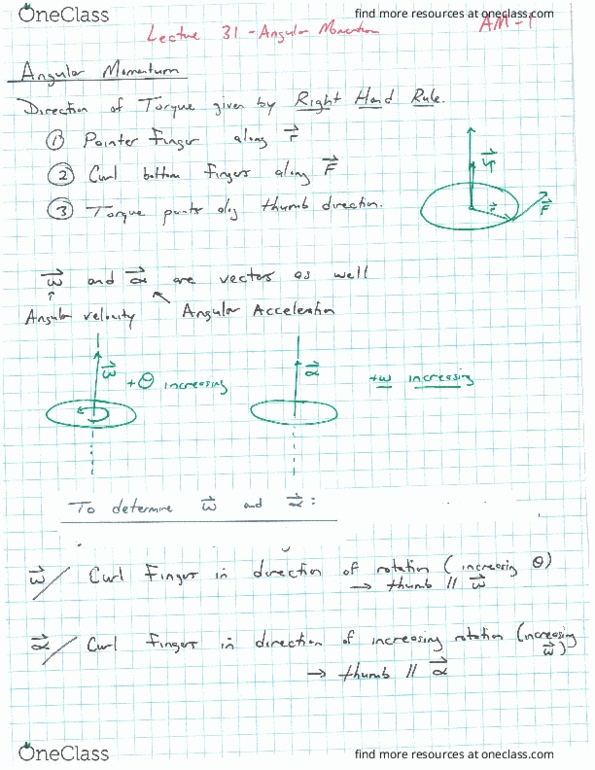 OneClass
find more resources at oneclass.com
Lecture 31 - Angular Momentum
AM-1
Angular Momentum
Direction of Torque given by Right Hand Rule.
① Pointer Finger along r⃗
② Curl bottom fingers along F⃗
③ Torque points along thumb direction.
r⃗
F⃗
ω⃗ and α⃗ are vectors as well
Angular velocity
Angular Acceleration
ω⃗
+θ increasing
α⃗
+ω increasing
To determine ω⃗ and α⃗:
ω⃗/ Curl Fingers in direction of rotation (increasing θ)
→ thumb // ω⃗
α⃗/ Curl Fingers in direction of increasing rotation (increasing ω⃗)
→ thumb // α⃗
OneClass
find more resources at oneclass.com